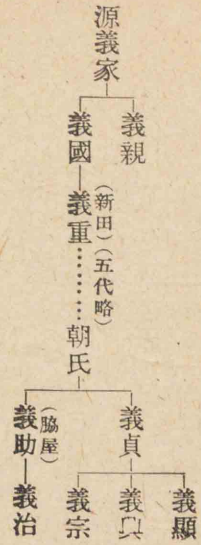 源義家
義親
義國
義重
(新田)(五代略)
朝氏
義貞
義顯
義興
義宗
義助
(脇屋)
義治